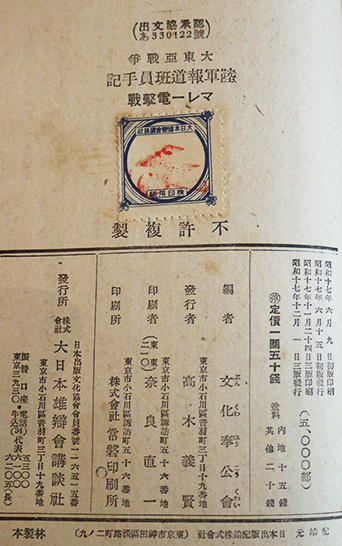 (出文協承認
あ330122號)
大東亞戰爭
陸軍報道班員手記
マレー電擊戰
大日本雄辯會講談社
檢印用紙
不許複製
昭和十七年六月九日初版印刷
昭和十七年六月十五日初版發行
昭和十七年十一月二十四日三版印刷
昭和十七年十二月一日三版發行
(五、〇〇〇部)
定價一圓五十錢
送料
內地十五錢
其他二十錢
編者 文化奉公會
東京市小石川區音羽町三丁目十九番地
發行者 高木義賢
東京市小石川區西古川町五十六番地
印刷者 (東京二一〇) 奈良直一
東京市小石川區西古川町五十六番地
印刷所 株式會社 常磐印刷所
日本出版文化協會會員番號一一六五一五番
東京市小石川區音羽町三丁目十九番地
發行所 株式會社 大日本雄辯會講談社
振替口座 東京三九三〇
電話牛込(34) 代表 五三〇〇 六二〇五(長)
配給元 日本出版配給株式會社 (東京市神田區淡路町二ノ九)
林製本